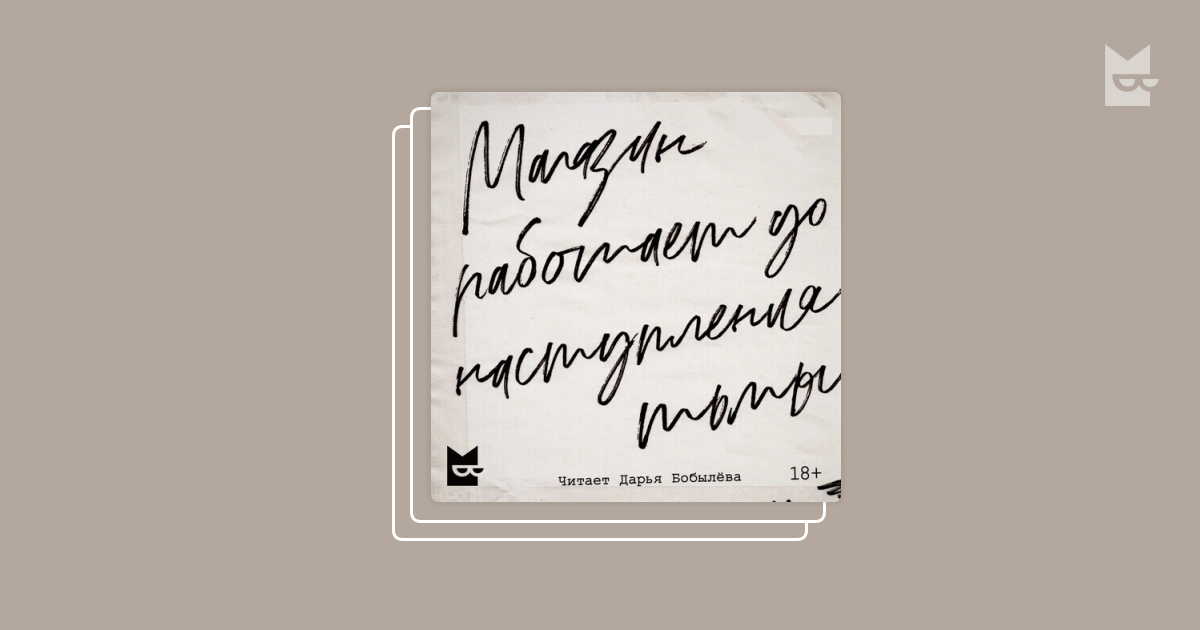 Магазин
работает до
наступления
тьмы
Читает Дарья Бобылёва
18+